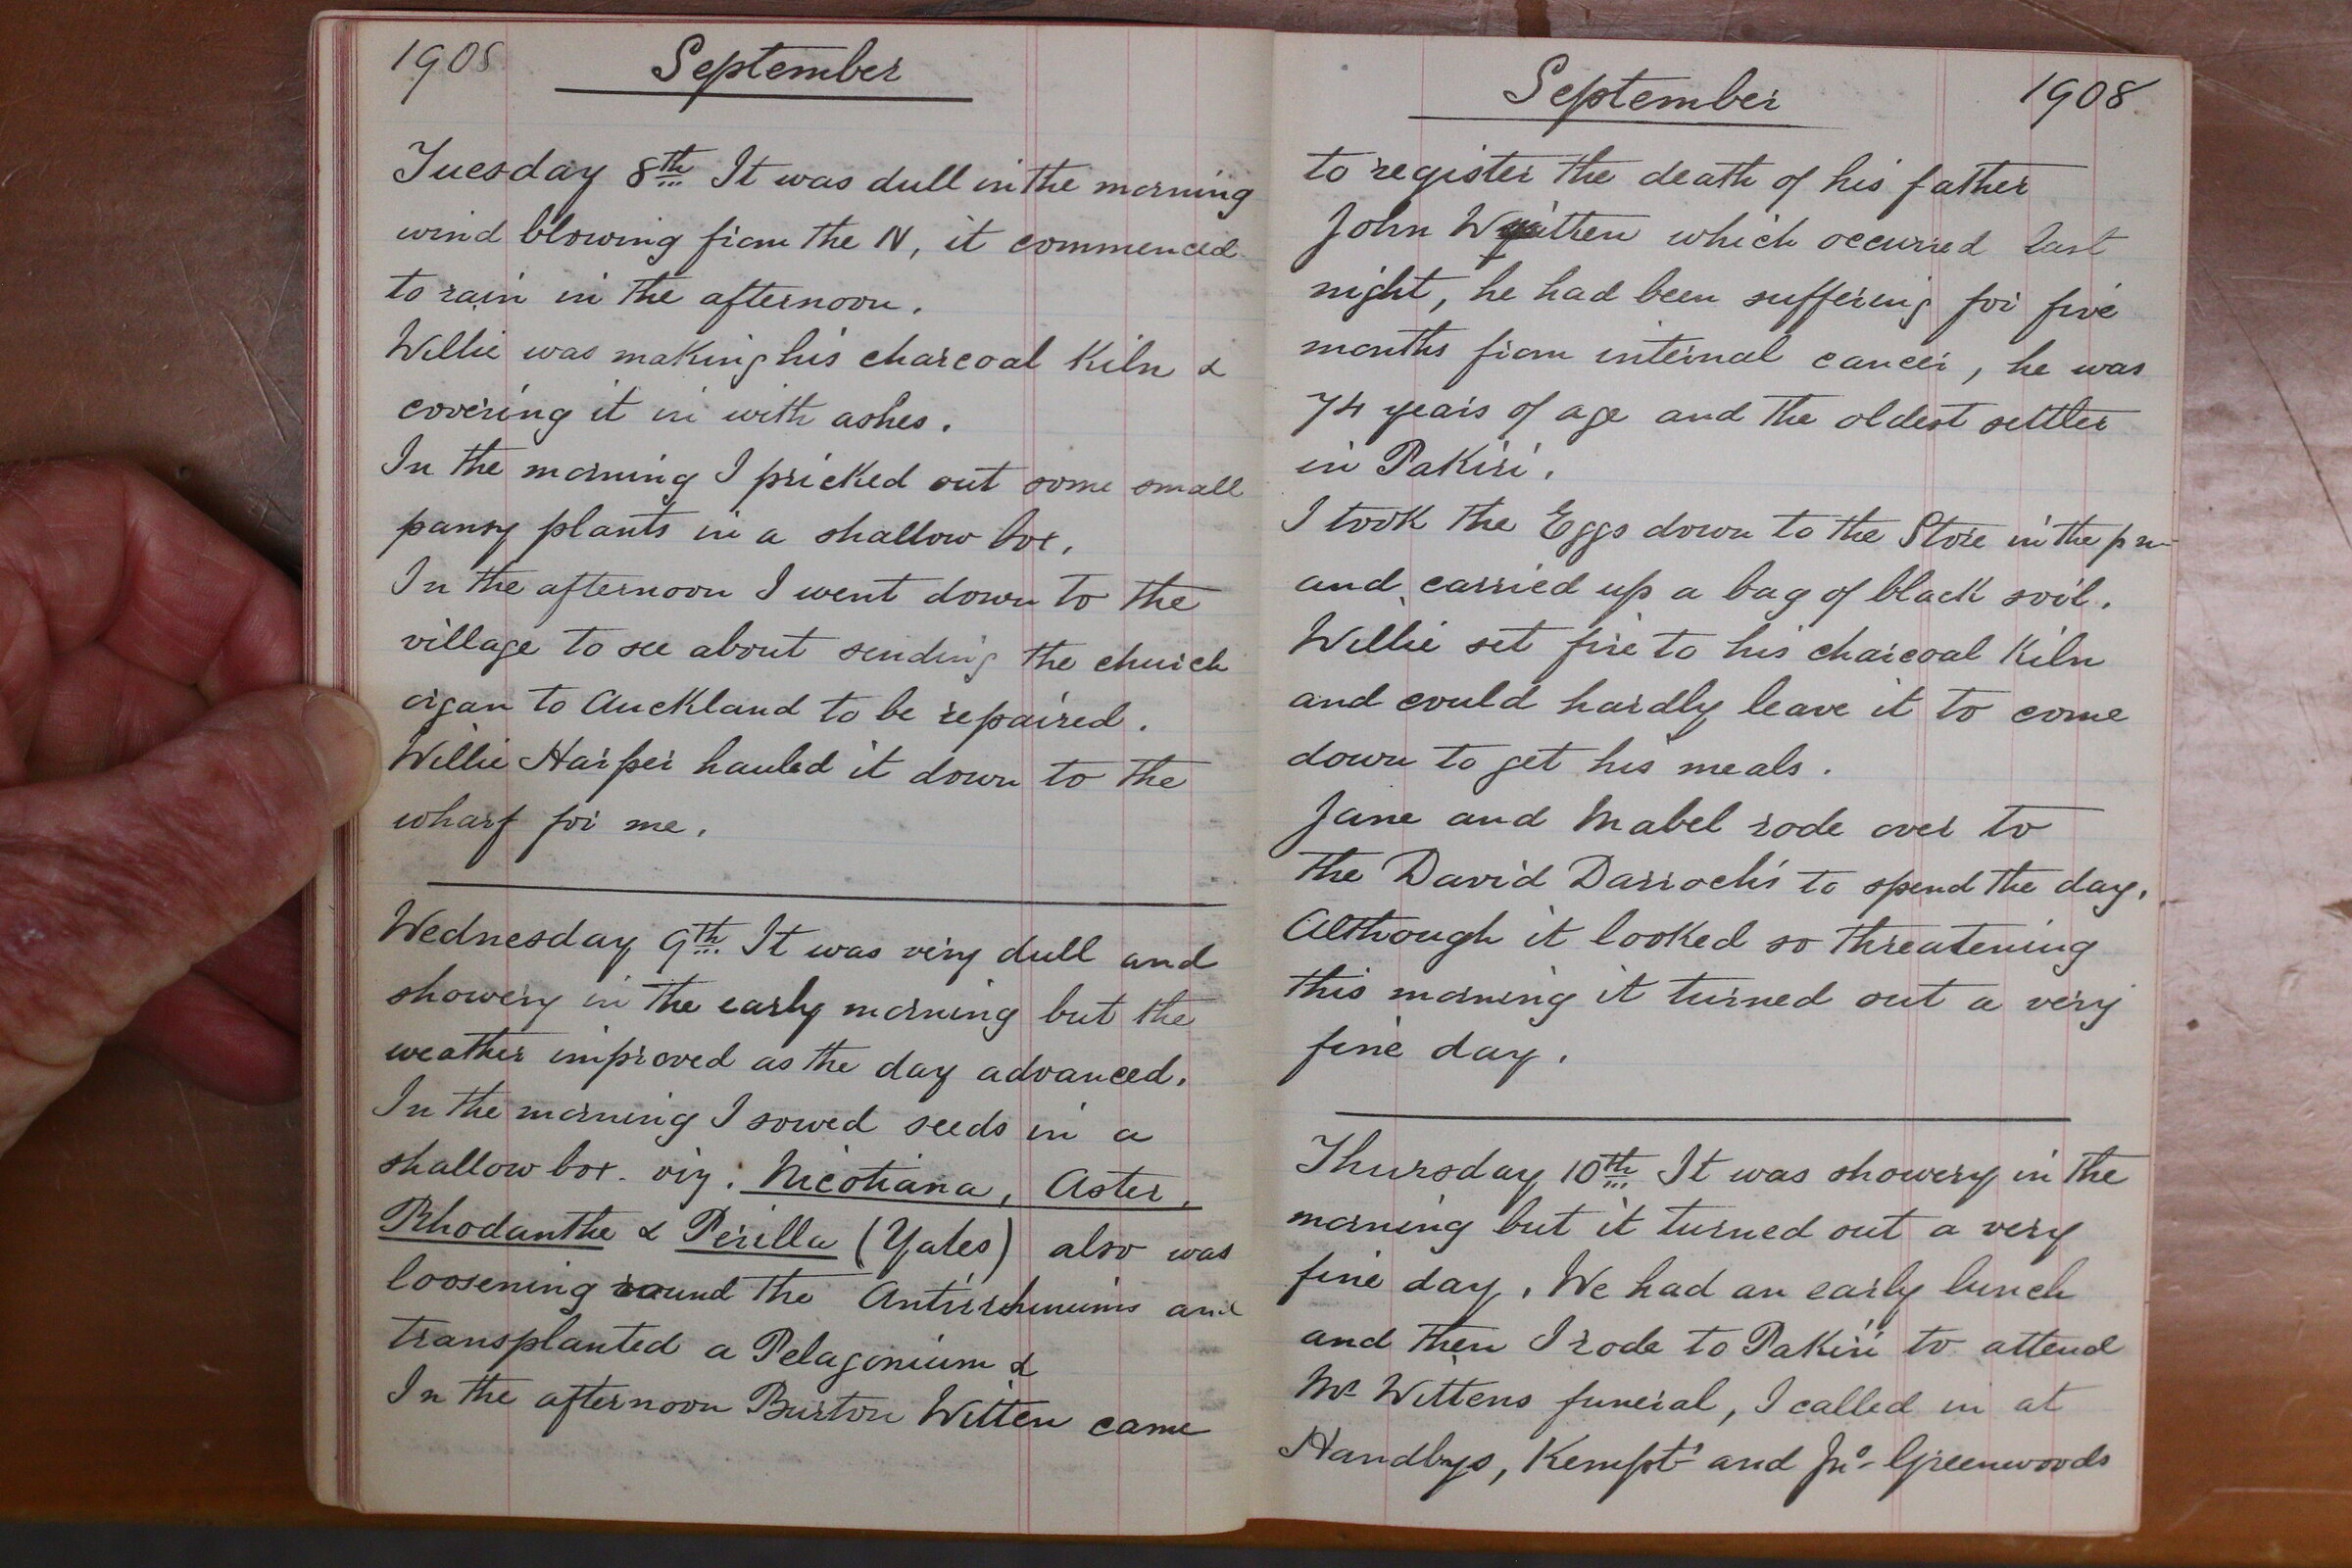 1908
September
Tuesday 8th It was dull in the morning
wind blowing from the N, it commenced
to rain in the afternoon.
Willie was making his charcoal Kiln &
covering it in with ashes.
In the morning I pricked out some small
pansy plants in a shallow box,
In the afternoon I went down to the
village to see about sending the church
organ to Auckland to be repaired.
Willie Harper hauled it down to the
wharf for me.
Wednesday 9th It was very dull and
showery in the early morning but the
weather improved as the day advanced.
In the morning I sowed seeds in a
shallow box. viz: Nicotiana, Aster,
Rhodanthe & Perilla (Yates) also was
loosening round the and
transplanted a Pelagonium &
In the afternoon Burton Witten came
September 1908
to register the death of his father
John which occurred last
night, he had been suffering for five
months from internal cancer, he was
74 years of age and the oldest settler
in Pakiri.
I took the Eggs down to the Store in the pm
and carried up a bag of black soil.
Willie set fire to his charcoal Kiln
and could hardly leave it to come
down to get his meals.
Jane and Mabel rode over to
the David Darroch's to spend the day.
Although it looked so threatening
this morning it turned out a very
fine day.
Thursday 10th It was showery in the
morning but it turned out a very
fine day. We had an early lunch
and then I rode to Pakiri to attend
Mr Wittens funeral, I called in at
Handbys, Kempt's and Jno Greenwoods